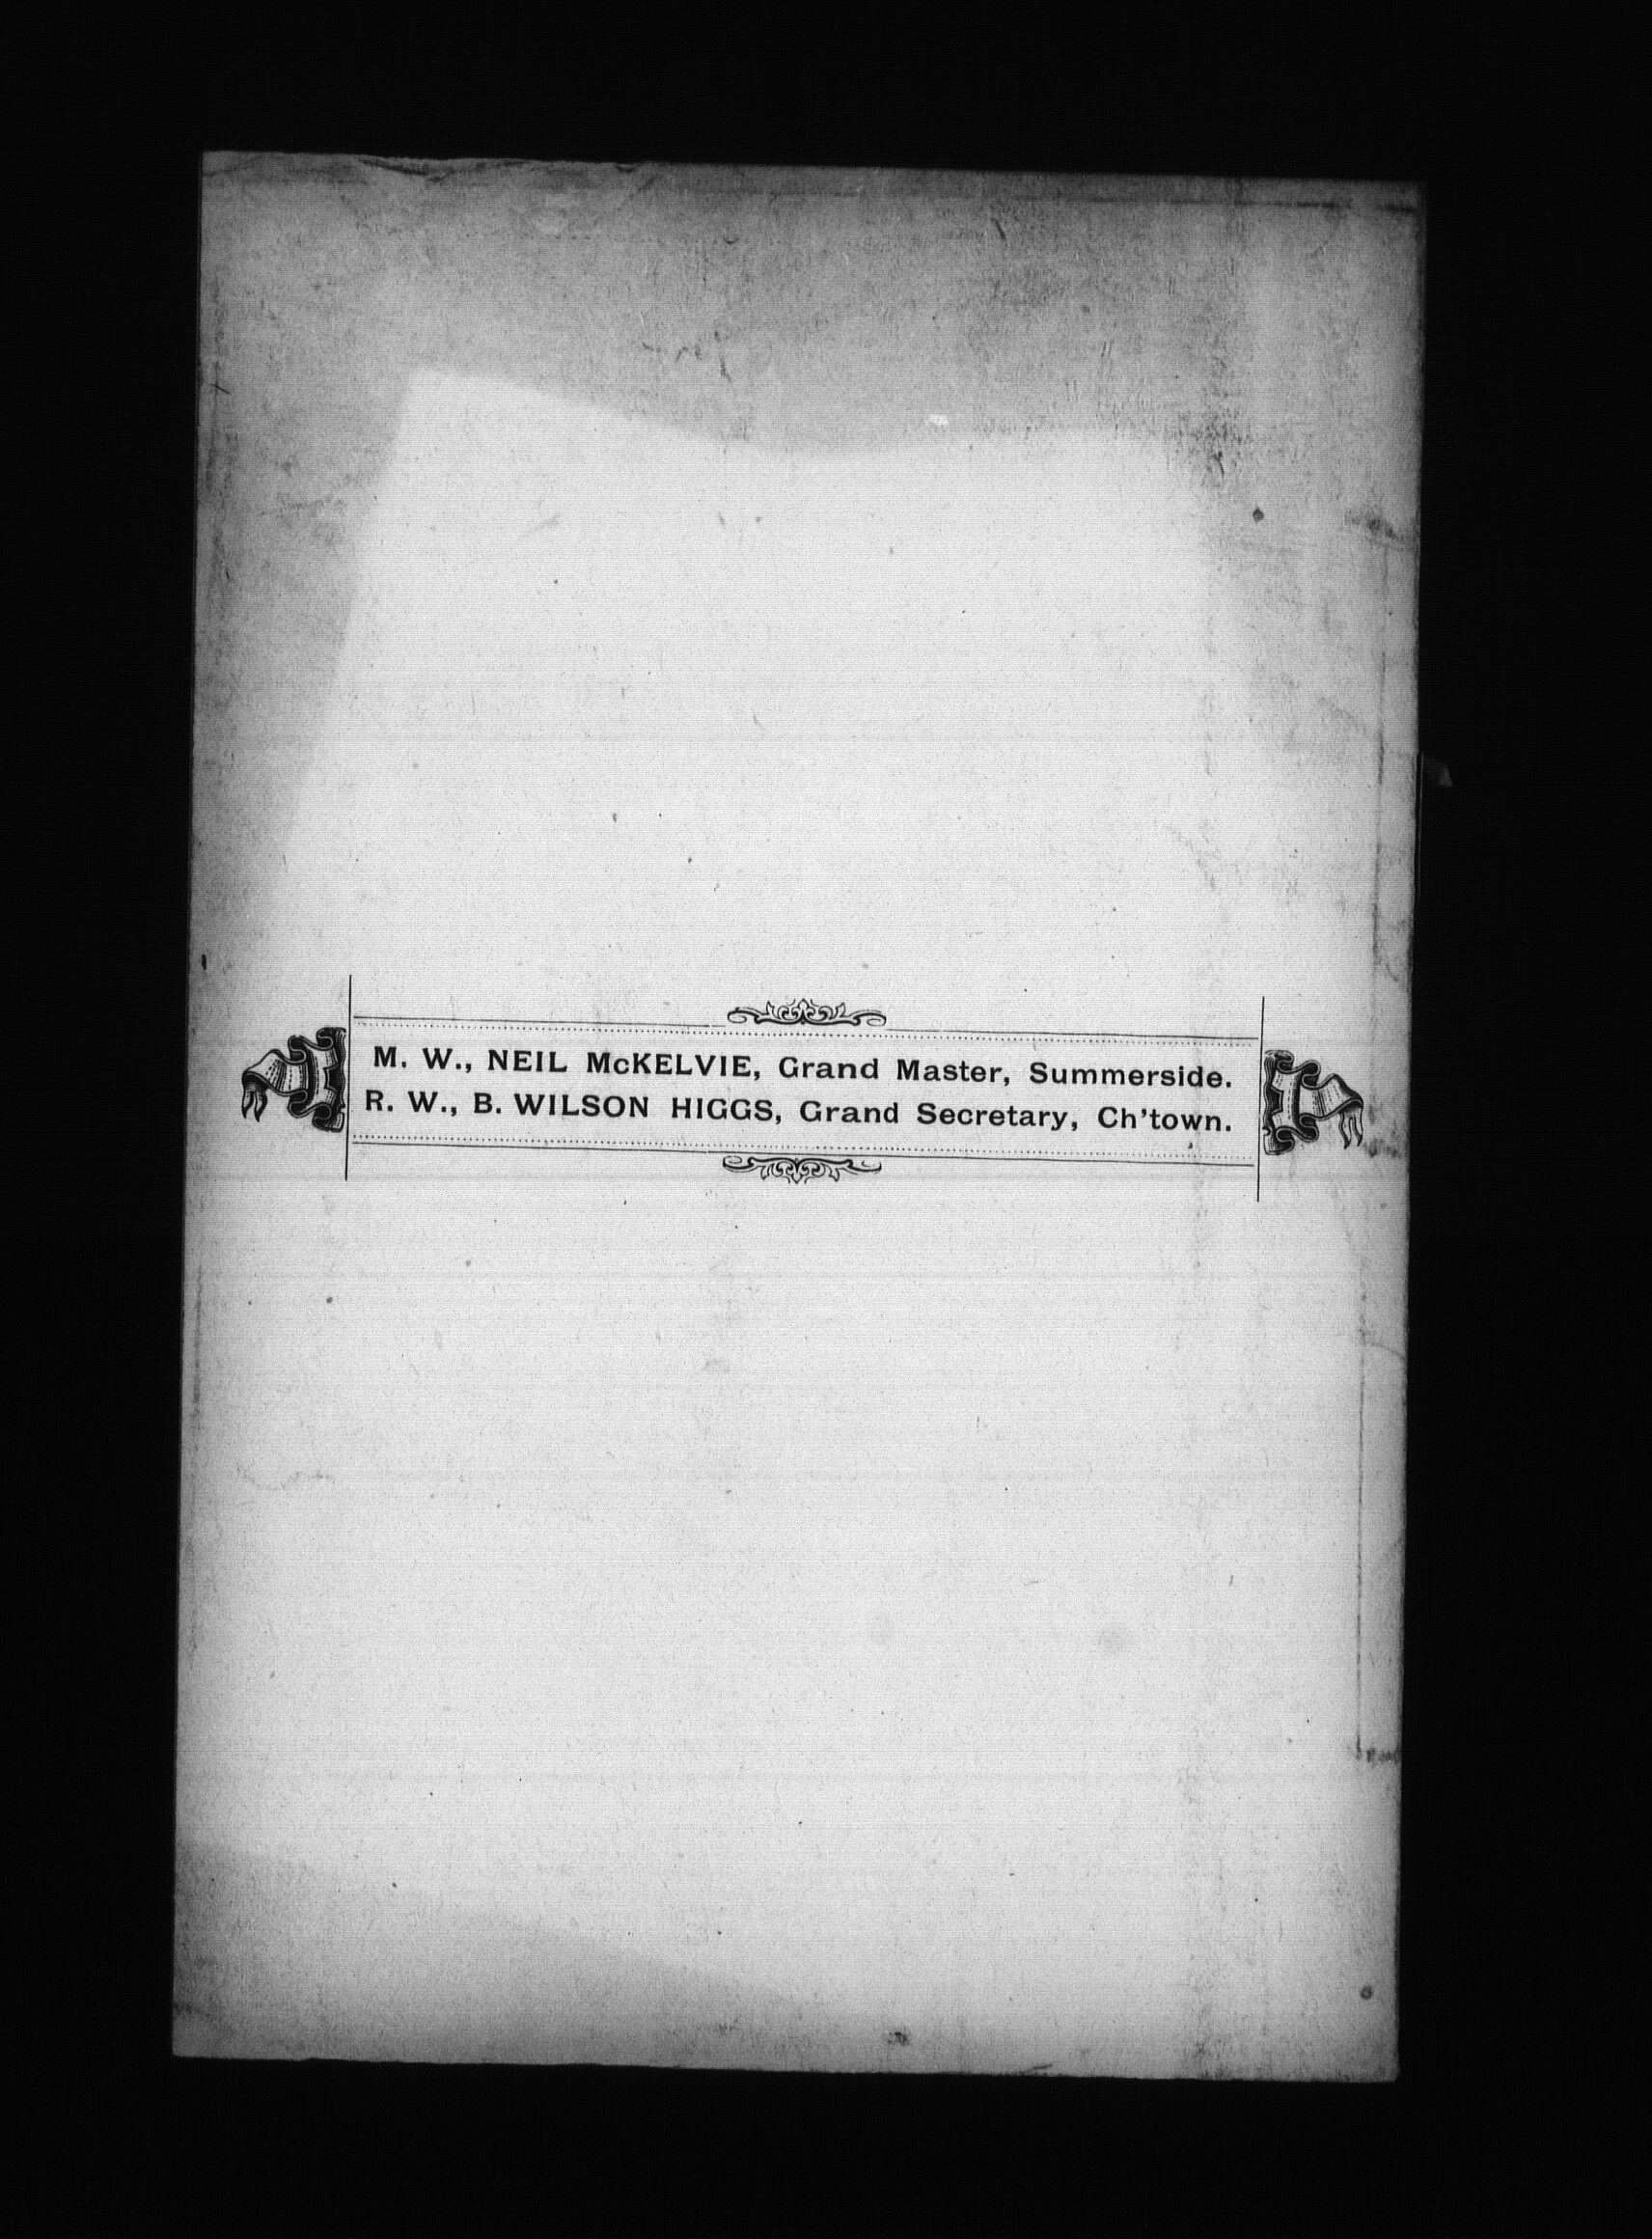 M. W., NEIL McKELVIE, Grand Master, Summerside.
R. W., B. WILSON HIGGS, Grand Secretary, Ch'town.